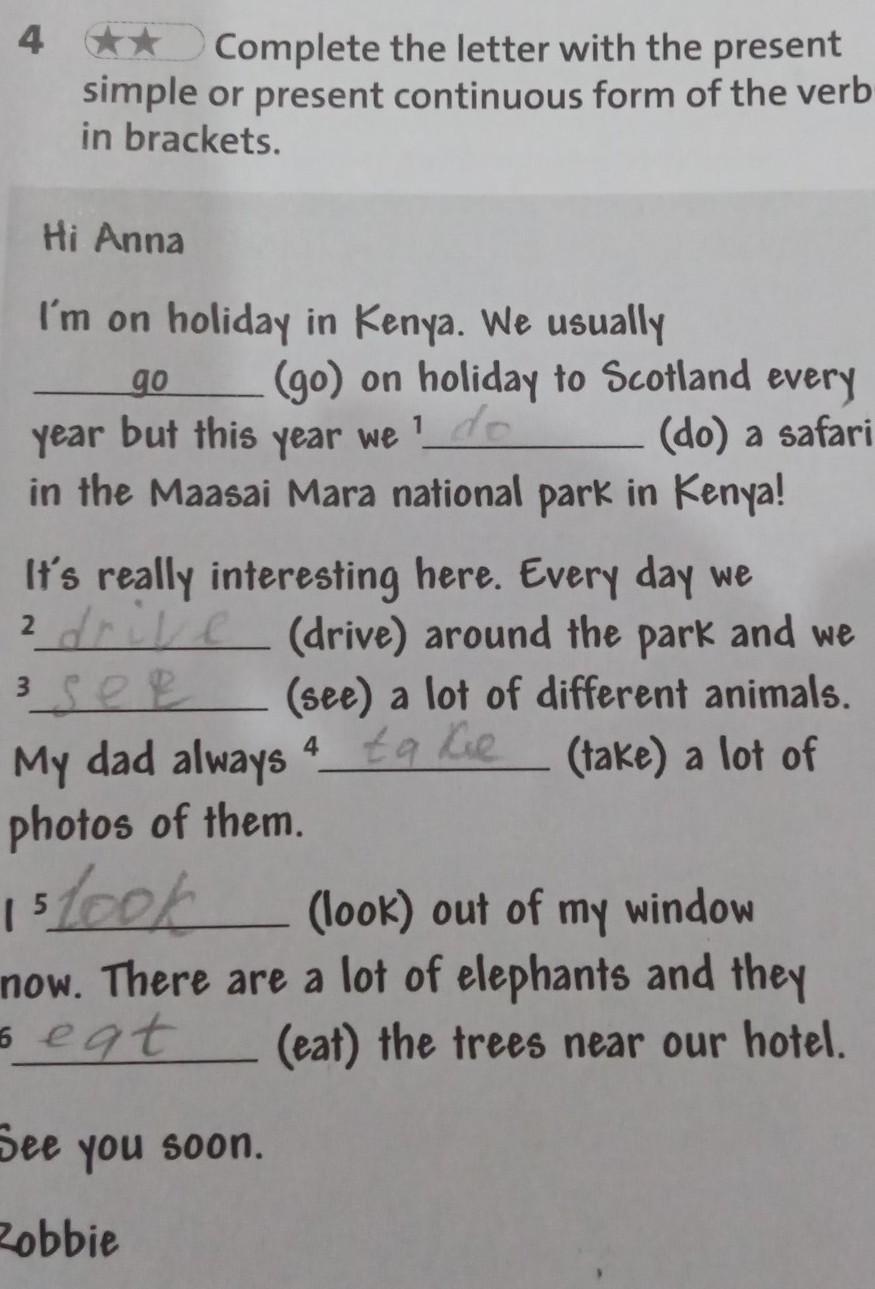 4 ★★ Complete the letter with the present
simple or present continuous form of the verb
in brackets.
Hi Anna
I'm on holiday in Kenya. We usually
go (go) on holiday to Scotland every
year but this year we 1 do (do) a safari
in the Maasai Mara national park in Kenya!
It's really interesting here. Every day we
2 drive (drive) around the park and we
3 see (see) a lot of different animals.
My dad always 4 take (take) a lot of
photos of them.
I 5 look (look) out of my window
now. There are a lot of elephants and they
6 eat (eat) the trees near our hotel.
See you soon.
Robbie